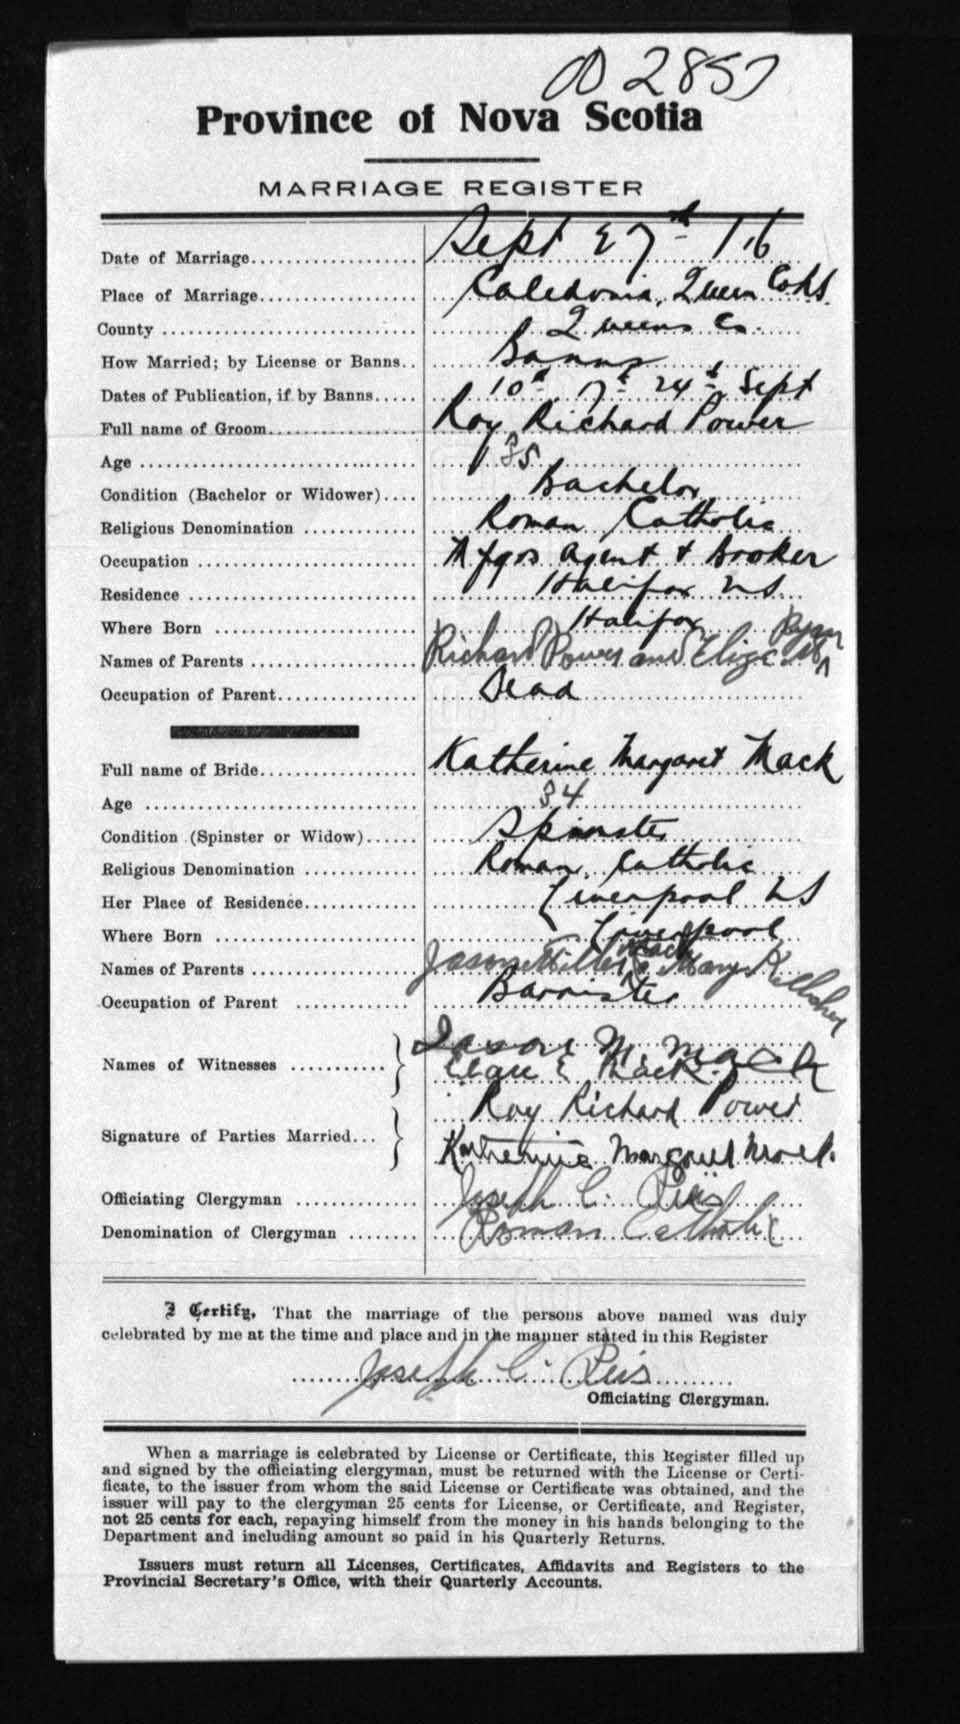 2857
Province of Nova Scotia
MARRIAGE REGISTER
Date of Marriage Sept 27th 16
Place of Marriage Caledonia, Queen Co NS.
County Queens Co.
How Married; by License or Banns Banns
Dates of Publication, if by Banns 10th 17th 24th Sept
Full name of Groom Roy Richard Power
Age 35
Condition (Bachelor or Widower) Bachelor
Religious Denomination Roman Catholic
Occupation Mfgrs Agent & Broker
Residence Halifax NS.
Where Born Halifax
Names of Parents Richard Power and Ryan
Occupation of Parent Dead
Full name of Bride Katherine Margaret Mack
Age 34
Condition (Spinster or Widow) Spinster
Religious Denomination Roman Catholic
Her Place of Residence Liverpool NS
Where Born Liverpool
Names of Parents Jason Miller Mack & Mary Kelleher
Occupation of Parent Barrister
Names of Witnesses Jason M. Mack
E Mack
Signature of Parties Married Roy Richard Power
Katherine Margaret Mack.
Officiating Clergyman Joseph C.
Denomination of Clergyman Roman Catholic
I Certify, That the marriage of the persons above named was duly
celebrated by me at the time and place and in the manner stated in this Register
Joseph C.
Officiating Clergyman.
When a marriage is celebrated by License or Certificate, this Register filled up
and signed by the officiating clergyman, must be returned with the License or Certi-
ficate, to the issuer from whom the said License or Certificate was obtained, and the
issuer will pay to the clergyman 25 cents for License, or Certificate, and Register,
not 25 cents for each, repaying himself from the money in his hands belonging to the
Department and including amount so paid in his Quarterly Returns.
Issuers must return all Licenses, Certificates, Affidavits and Registers to the
Provincial Secretary's Office, with their Quarterly Accounts.